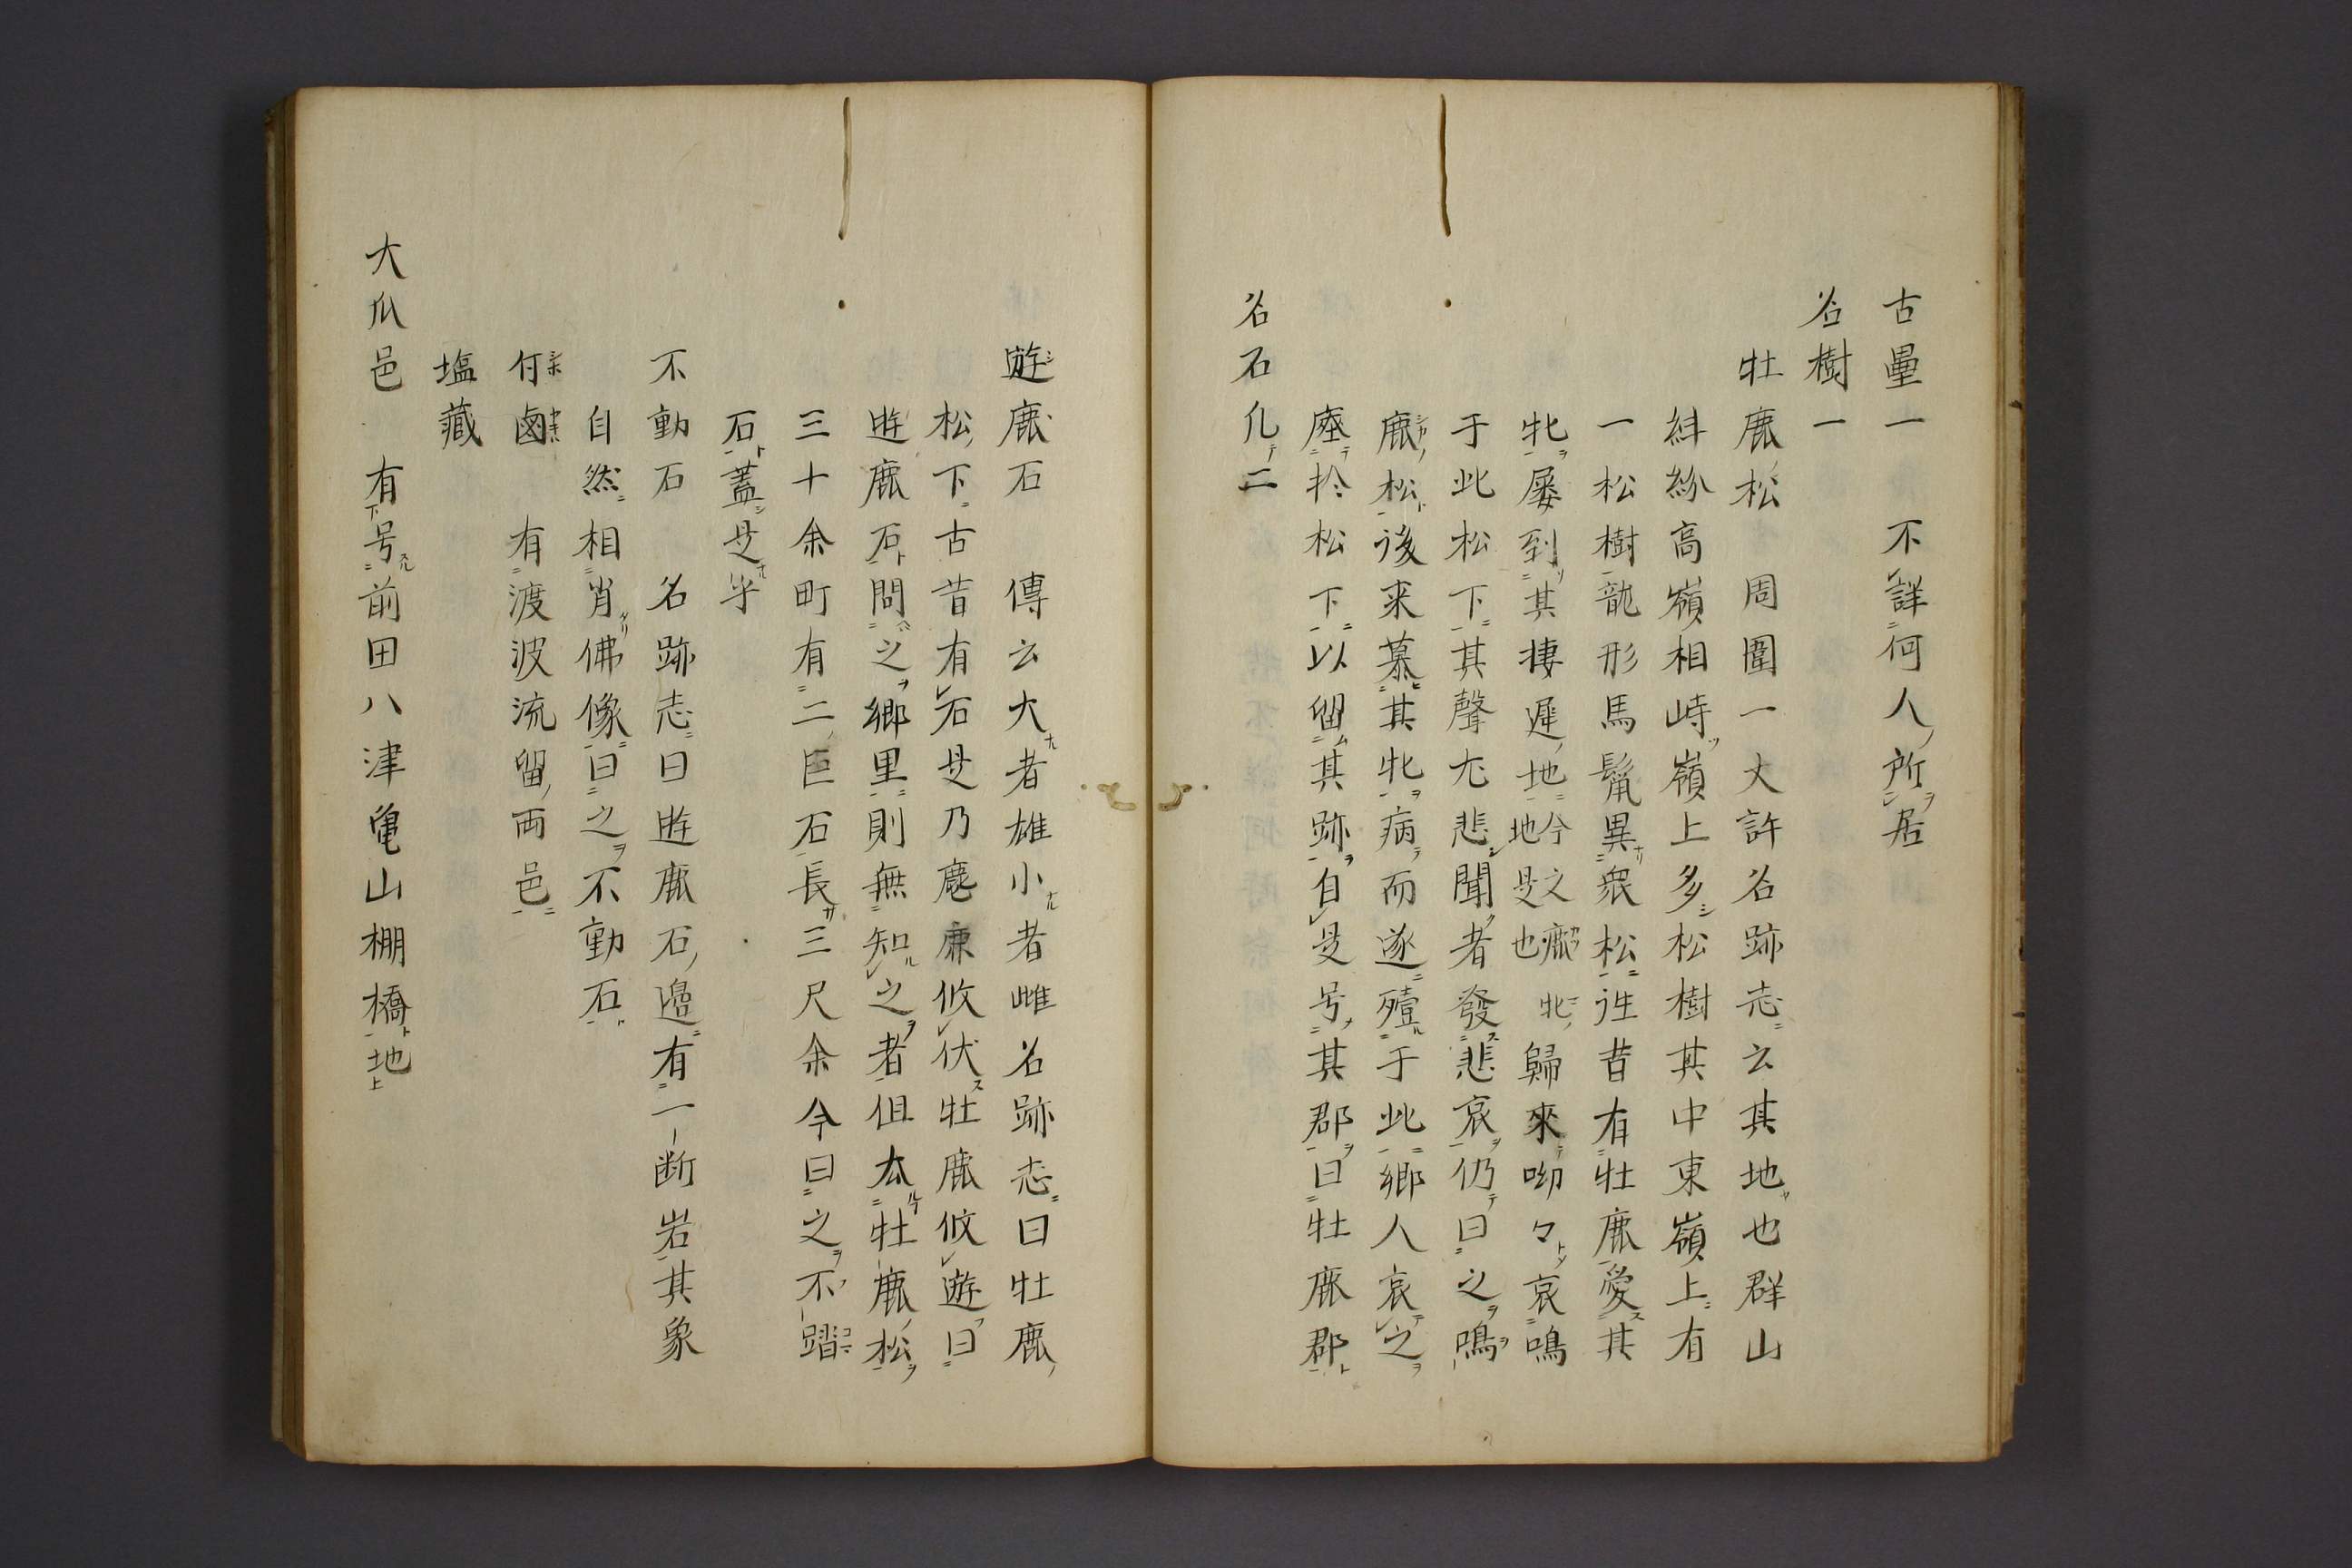 古壘一　不詳何人所居
名樹一
牡鹿松　周圍一丈許名跡志云其地也群山
糾紛高嶺相峙嶺上多松樹其中東嶺上有
一松樹龍形馬鬣異衆松徃昔有牡鹿愛其
牝屡到其棲遲地今之鹿地是也牝歸來呦々哀鳴
于此松下其聲尤悲聞者發悲哀仍曰之鳴
鹿松後来慕其牝病而遂殪于此郷人哀之
瘞扵松下以留其跡自是号其郡曰牡鹿郡
名石凢二
遊鹿石　傳云大者雄小者雌名跡志曰牡鹿
松下古昔有石是乃麀鹿攸伏牡鹿攸遊曰
遊鹿石問之郷里則無知之者但去牡鹿松
三十余町有二巨石長三尺余今曰之不踏
石蓋是乎
不動石　名跡志曰遊鹿石邉有一断岩其象
自然相肖佛像曰之不動石
付鹵　有渡波流留両邑
塩藏
大瓜邑　有号前田八津亀山棚橋地